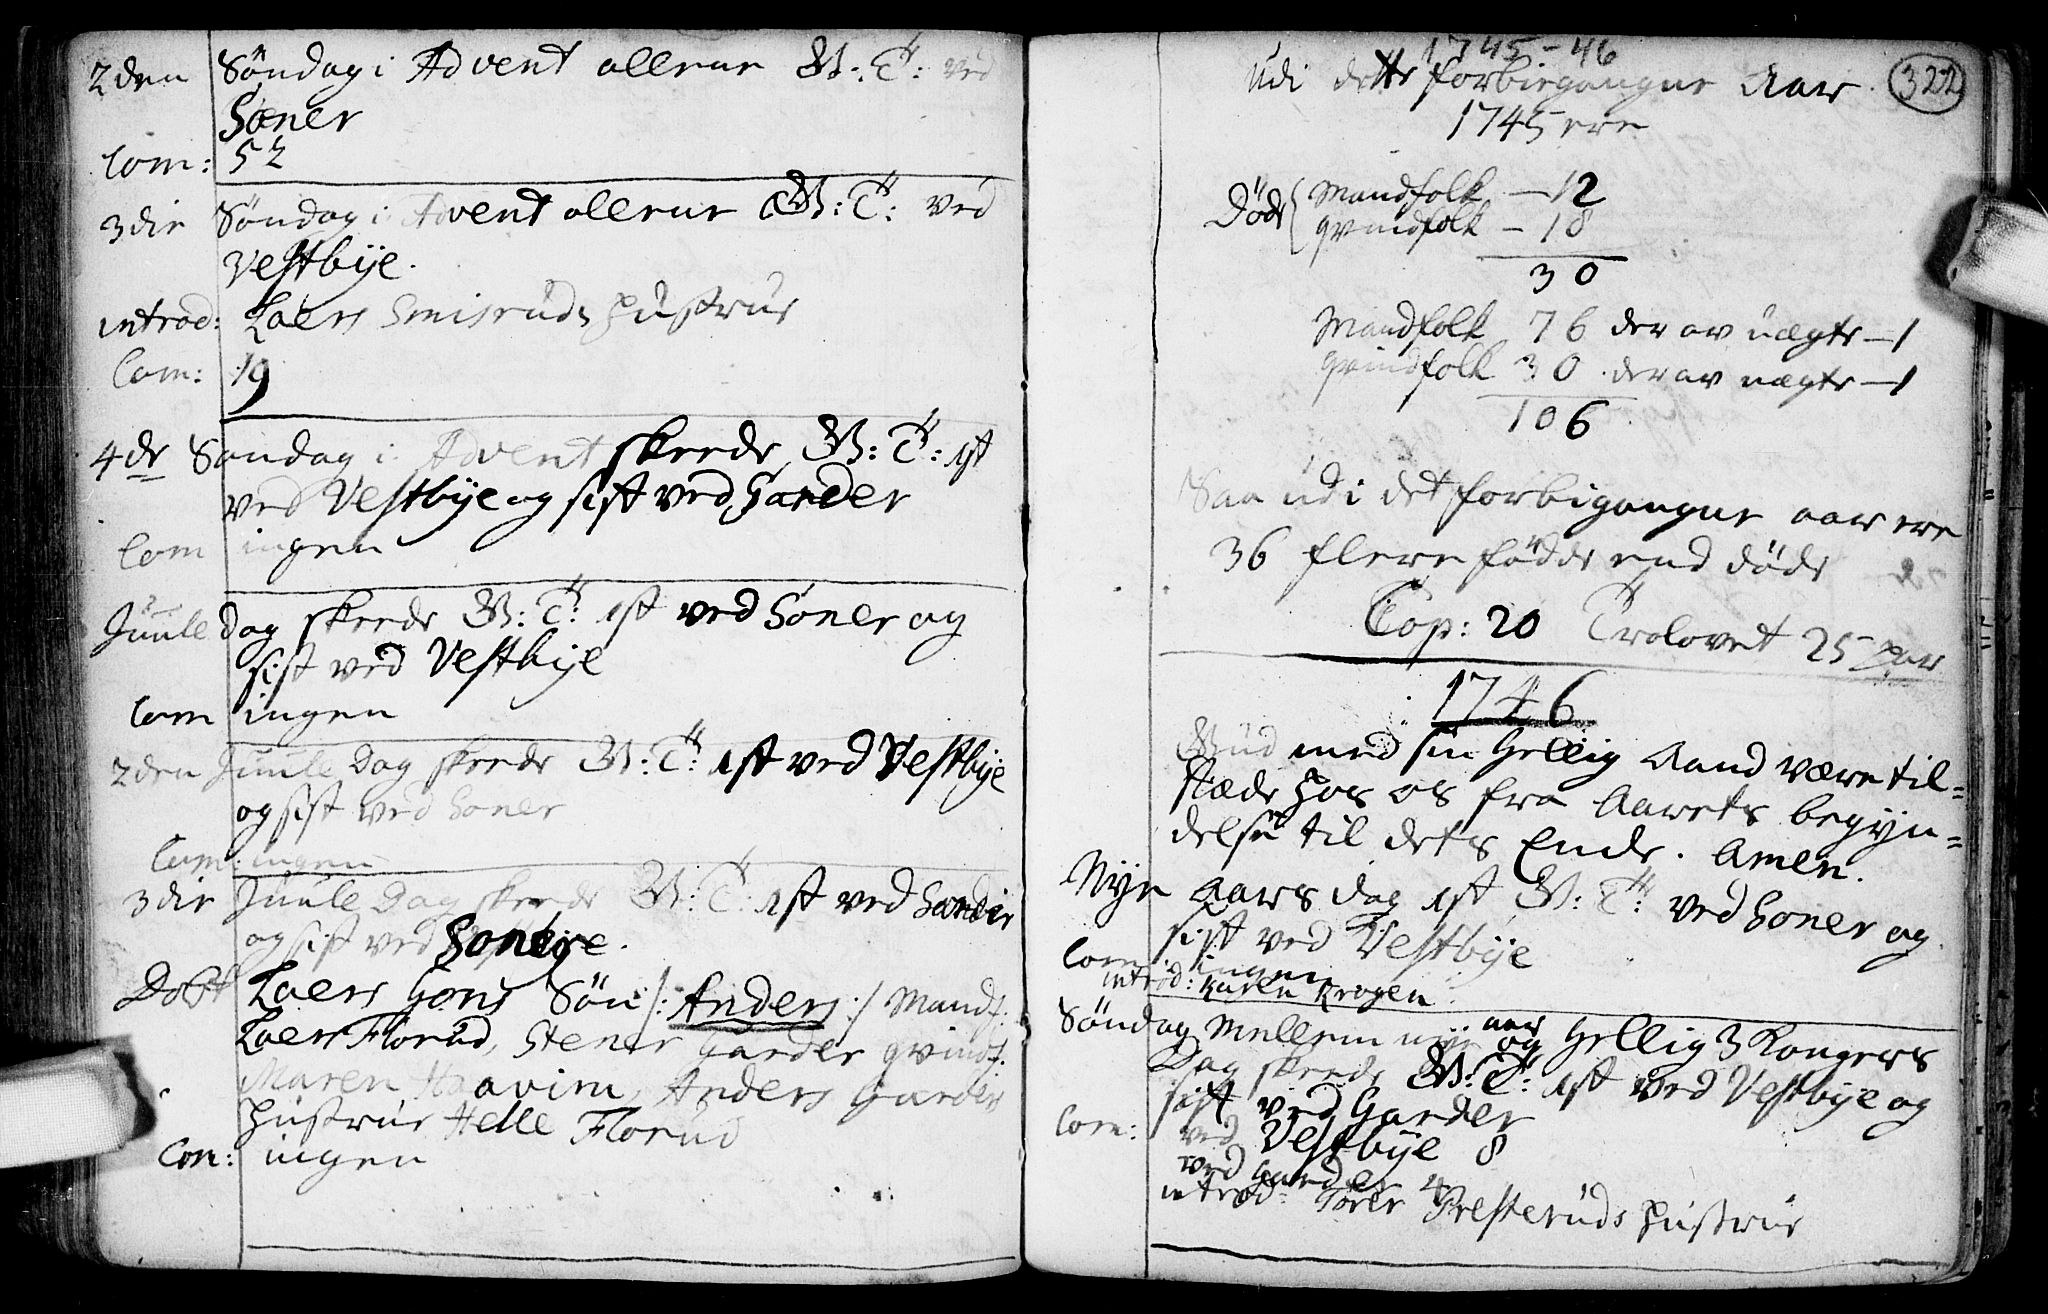 2den Söndag i Advent allene G: T: ved
Soner
Com: 52
3die Söndag i Advent allene G: T: ved
Vestbye.
introd: Laers Smisruds Hustrue
Com: 19
4de Söndag i Advent skeede G: T: 1st
ved Vestbye og sist ved Garder
Com ingen
Juule Dag skeede G: T: 1st ved Soner og
sist ved Vestbye
Com ingen
2den Juule Dag skeede G: T: 1st ved Vestbye
og sist ved Soner
Com: ingen
3die Juule Dag skeede G: T: 1st ved Garder
og sist ved
Döbt Laers Sön /: Anders :/ Mandf:
Laers Florud, Stener Garder Qvindf:
Maren, Anders Garders
Hustrue Helle Florud
Com: ingen
1745-46
322
Udi dette forbiegangne Aar
1745 ere
Döde { Mandfolk — 12
Qvindfolk — 18
30
Mandfolk 76 der av uægte — 1
Qvindfolk 30 der av uægte — 1
106
Saa udi det forbigangne aar ere
36 flere födde end döde
Cop: 20 Trolovet 25 par
1746
Gud med sin Hellig Aand være til=
stæde hos os fra Aarets begyn=
delse til dets Ende. Amen.
Nye Aars Dag 1st G: T: ved Soner og
sist ved Vestbye
Com ingen
introd: Karen Krogen
Söndag Mellem nye aar og Hellig 3 Kongers
Dag skeede G: T: 1st ved Vestbye og
sist ved Garder
Com: ved Vestbye 8
ved Garder 4
introd: Torer Presteruds Hustrue